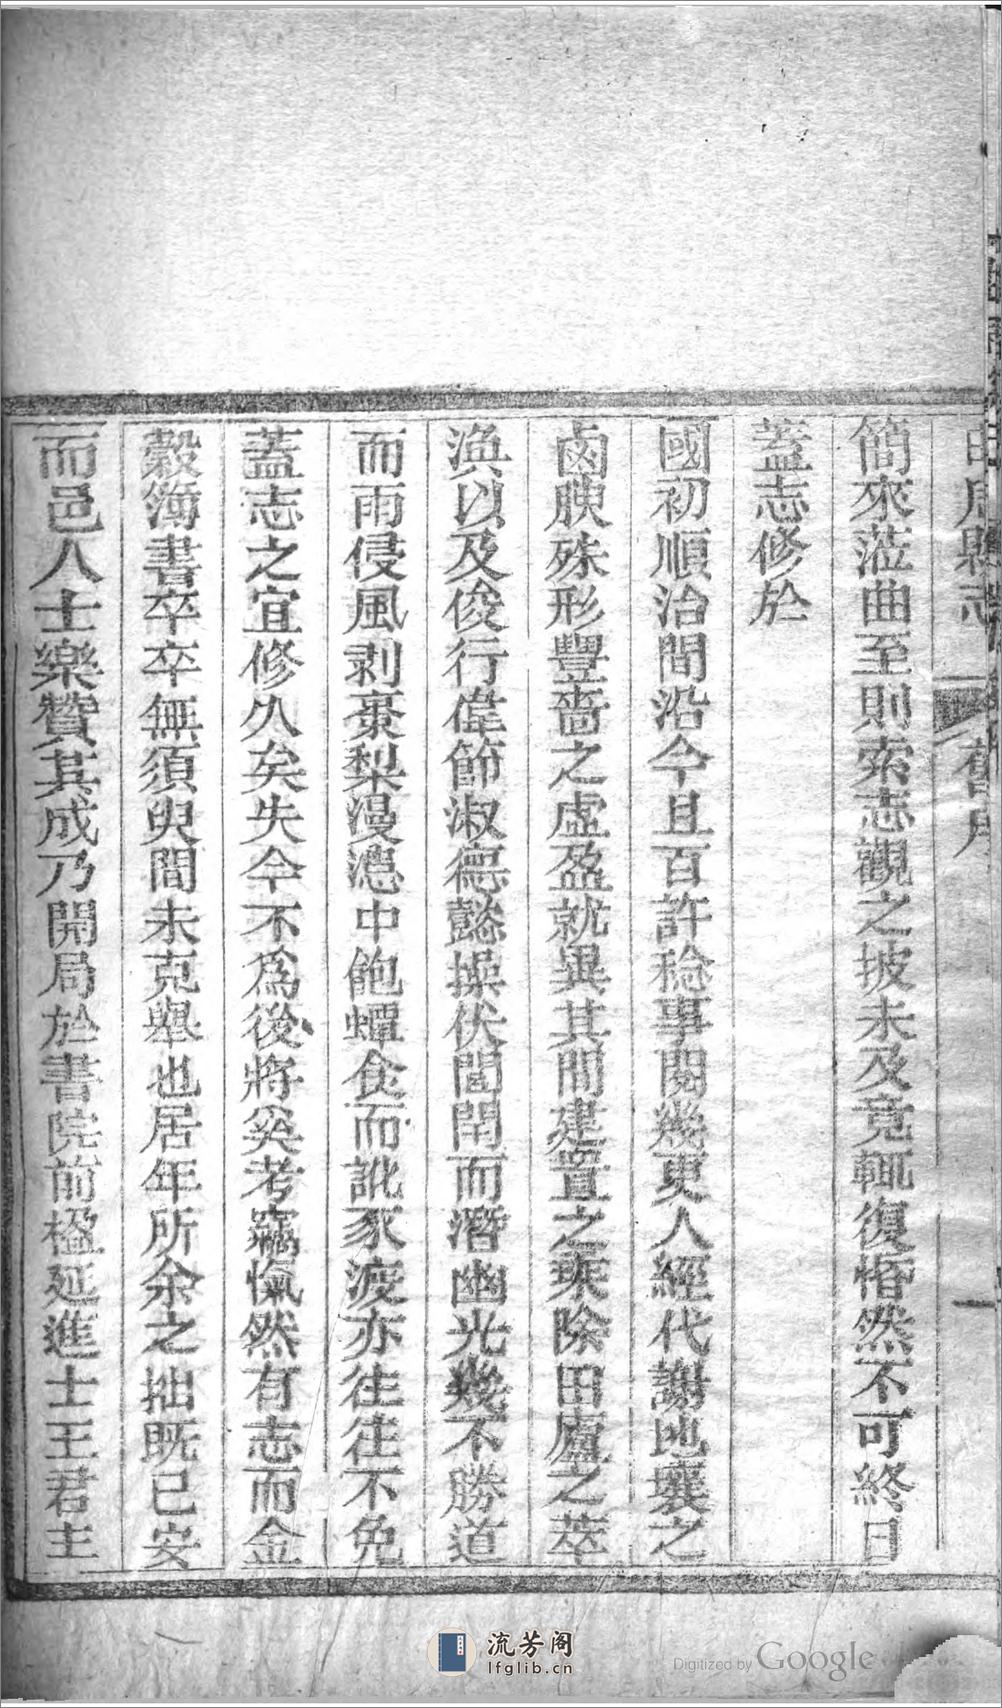 曲周縣志　舊序　一
簡來蒞曲至則索志觀之披未及竟輒復惛然不可終日
蓋志修於
國初順治間沿今且百許稔事閱幾更人經代謝地壤之
鹵腴殊形豐嗇之虛盈就異其間建置之乘除田廬之萃
渙以及俊行偉節淑德懿操伏閭閈而潛幽光幾不勝道
而雨侵風剥棗梨漫漶中飽蟫食而訛豕渡亦往往不免
蓋志之宜修久矣失今不爲後將奚考竊愾然有志而金
穀簿書卒卒無須臾間未克舉也居年所余之拙既已安
而邑人士樂贊其成乃開局於書院前楹延進士王君主
流芳阁
lfglib.cn
Digitized by Google